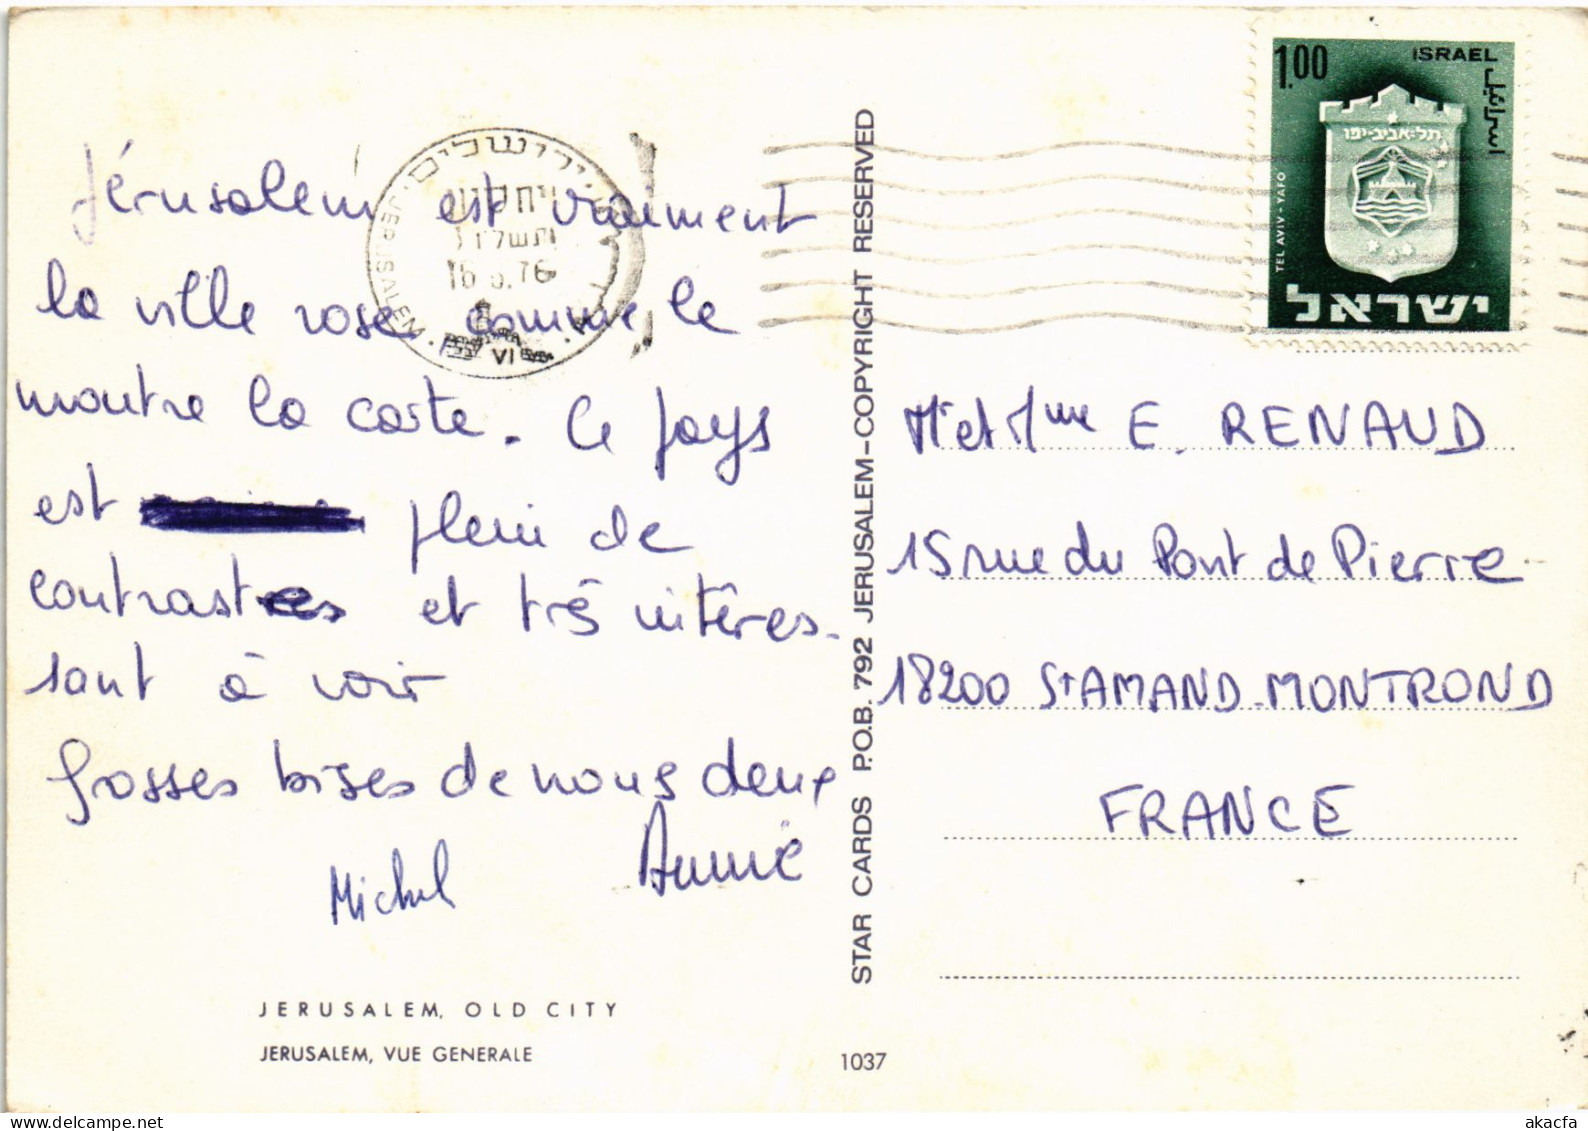 Jérusalem est vraiment
la ville rose comme le
montre la carte. Ce pays
est plein de
contrastes et très intéres-
sant à voir
Grosses bises de nous deux
Michel Annie
JERUSALEM, OLD CITY
JERUSALEM, VUE GENERALE
1037
STAR CARDS P.O.B. 792 JERUSALEM-COPYRIGHT RESERVED
ירושלים
JERUSALEM
VI
1.00 ISRAEL
اسرائيل
תל-אביב-יפו
TEL AVIV - YAFO
ישראל
Mr et Mme E. RENAUD
15 rue du Pont de Pierre
18200 St AMAND-MONTROND
FRANCE
delcampe.net
akacfa